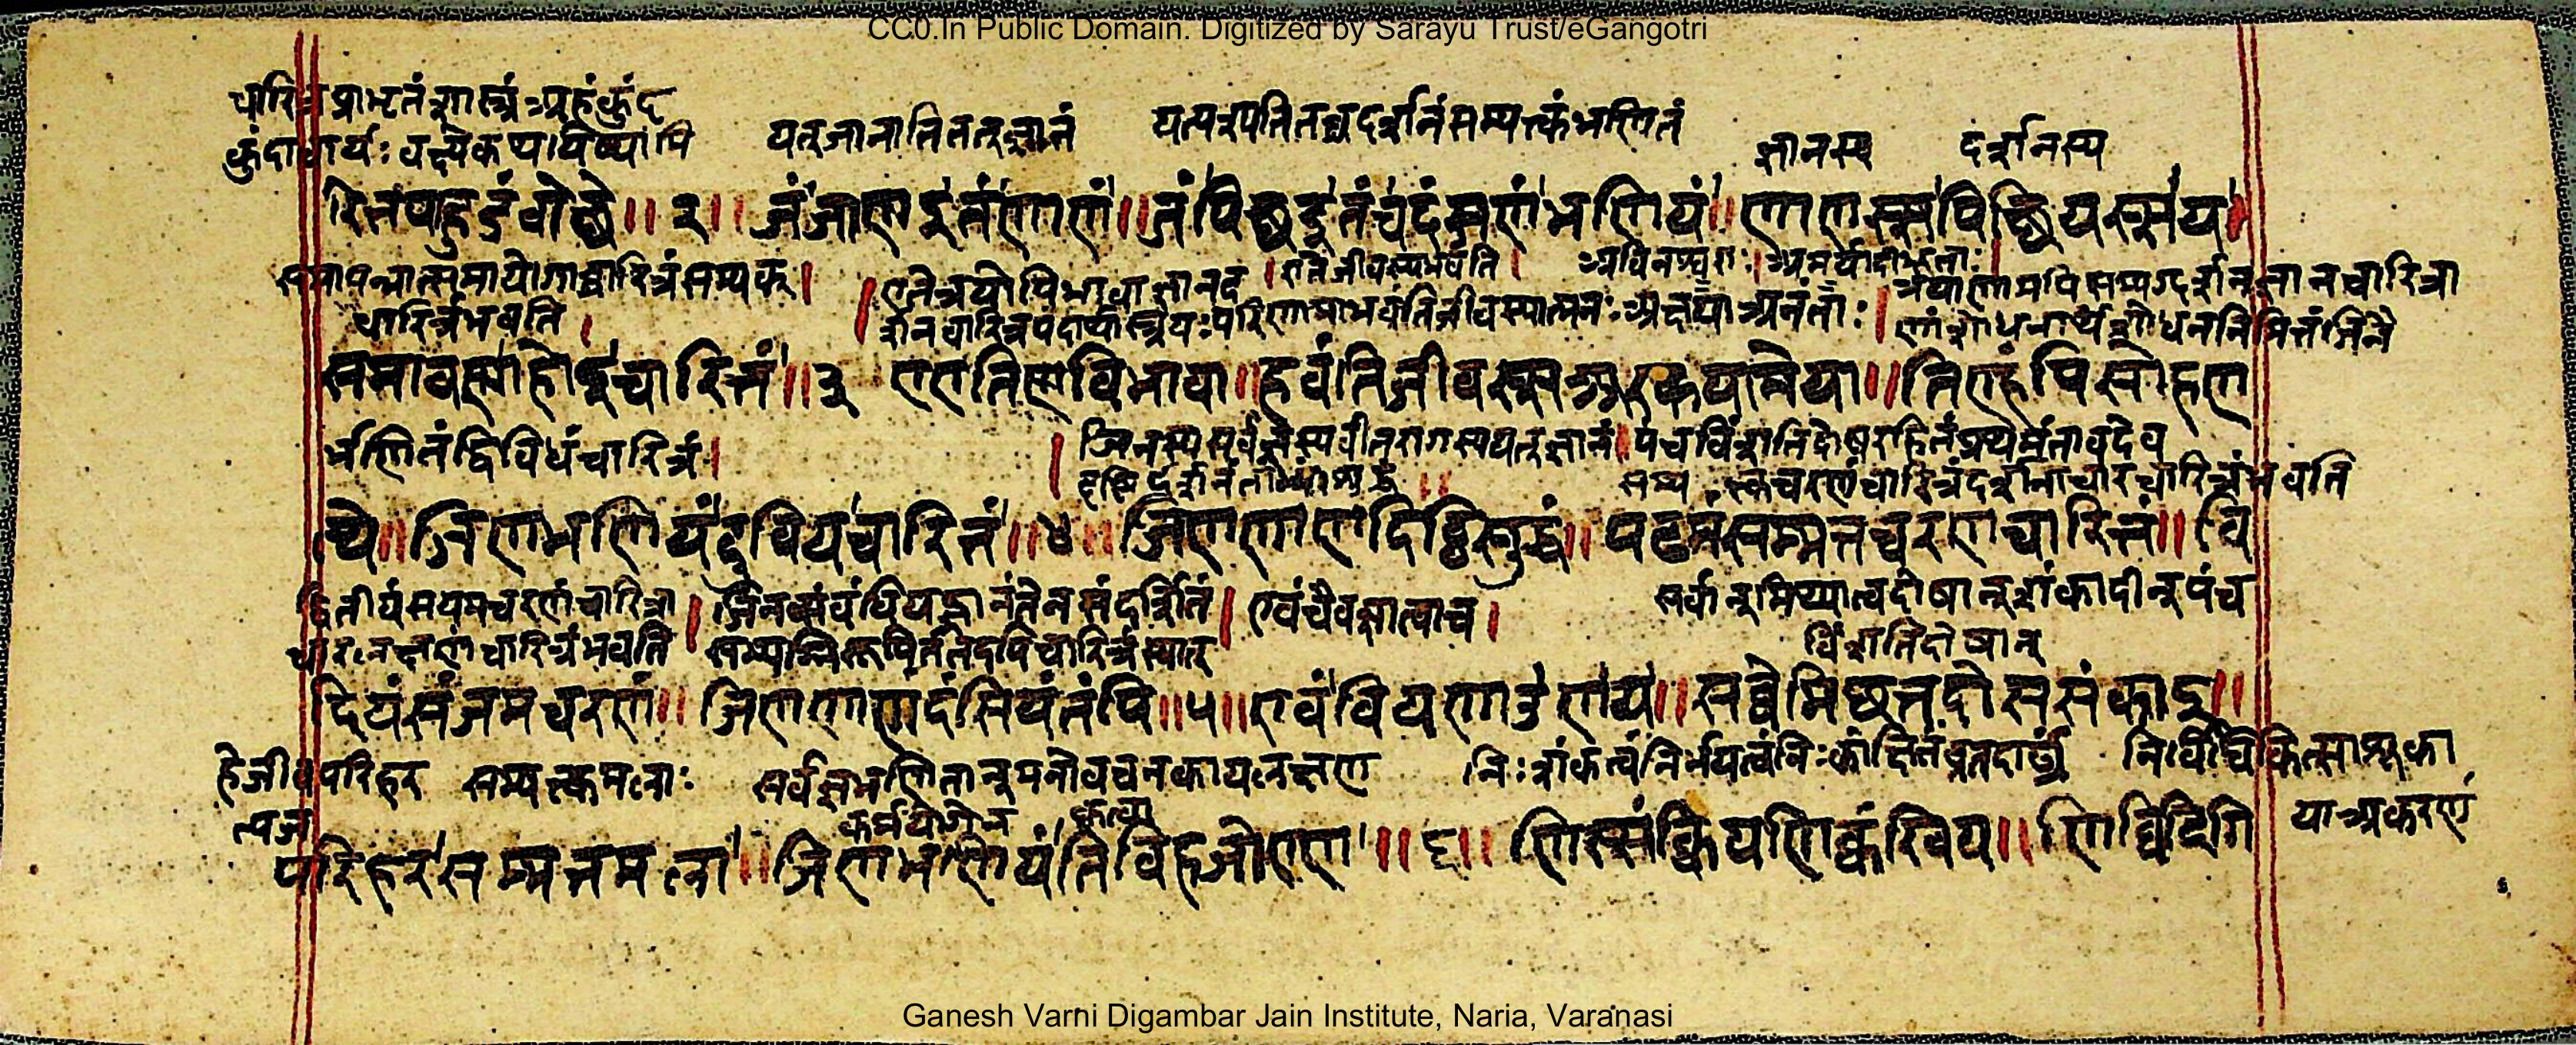 CC0.In Public Domain. Digitized by Sarayu Trust/eGangotri
चारित्रप्राभृतंशास्त्रंअहंकुंद
कुंदाचार्यः वक्ष्येकथयिष्यामि यत्जानातितत्ज्ञानं यत्पश्यतितच्चदर्शनंसम्यक्त्कंभणितं ज्ञानस्य दर्शनस्य
रित्तपाहुडंवोछे॥ २॥ जंजाणइतंणाणं॥जंपिच्छइतंचदंसणंभणियं॥ णाणस्सपिच्छियस्सय॥
समापन्नात्समायोगाच्चारित्रंसम्यक्। एतेत्रयोपिभावाज्ञानद।एतेजीवस्यभवंति। अविनश्वराः।अमर्यादीभूताः।त्रयाणामपिसम्यग्दर्शनज्ञानचारित्रा
चारित्रंभवति। र्शनचारित्रपदार्थास्त्रयःपरिणामाभवंतिजीवस्यात्मनःअक्षयाअनंताः।णांशोधनार्थंशोधननिमित्तंजिनै
समावण्णाहोइचारित्तं॥३ एएतिण्णविभावा॥हवंतिजीवस्सअक्खयामेया॥तिण्हंपिसोहण
र्भणितंद्विविधंचारित्रं। जिनस्यसर्वज्ञस्यवीतरागस्ययत्ज्ञानं।पंचविंशतिदोषरहितंप्रथमंतावदेव
दृष्टिर्दर्शनंताभ्यांशुद्धं सम्यक्त्कचरणंचारित्रंदर्शनाचारचारित्रंभवति
त्थे॥जिणभणियंदुवियचारित्तं॥४॥जिणणाणदिट्ठिसुद्धं॥पढमंसम्मत्तचरणचारित्तं॥वि
द्वितीयंसंयमचरणंचारित्रा।जिनस्यसंबंधियज्ज्ञानंतेनसंदर्शितं।एवंचैवज्ञात्वाच। सर्वान्मिथ्यात्वदोषान्शंकादीन्पंच
चारलक्षणंचारित्रंभवति सम्यग्निरूपितंतदपिचारित्रंस्यात् विंशतिदोषान्
दियंसंजमचरणं॥ जिणणाणदंसियंतंपि॥५॥एवंवियणाउणय॥सव्वेमिछत्तदोससंकाइ॥
हेजीवपरिहर सम्यक्त्कमलाः सर्वज्ञभणितान्मनोवचनकायलक्षण निःशंकत्वंनिर्भयत्वंनिःकांक्षितंव्रतदार्ढ्यं निर्विचिकित्साशूका
त्यज कर्मयोगेन कृत्वा याअकरणं
परिहरसम्मत्तमला॥जिणभणियंतिविहजोएण॥६॥णिस्संकियणिक्कंखिय॥णिव्विदिगि
Ganesh Varni Digambar Jain Institute, Naria, Varanasi